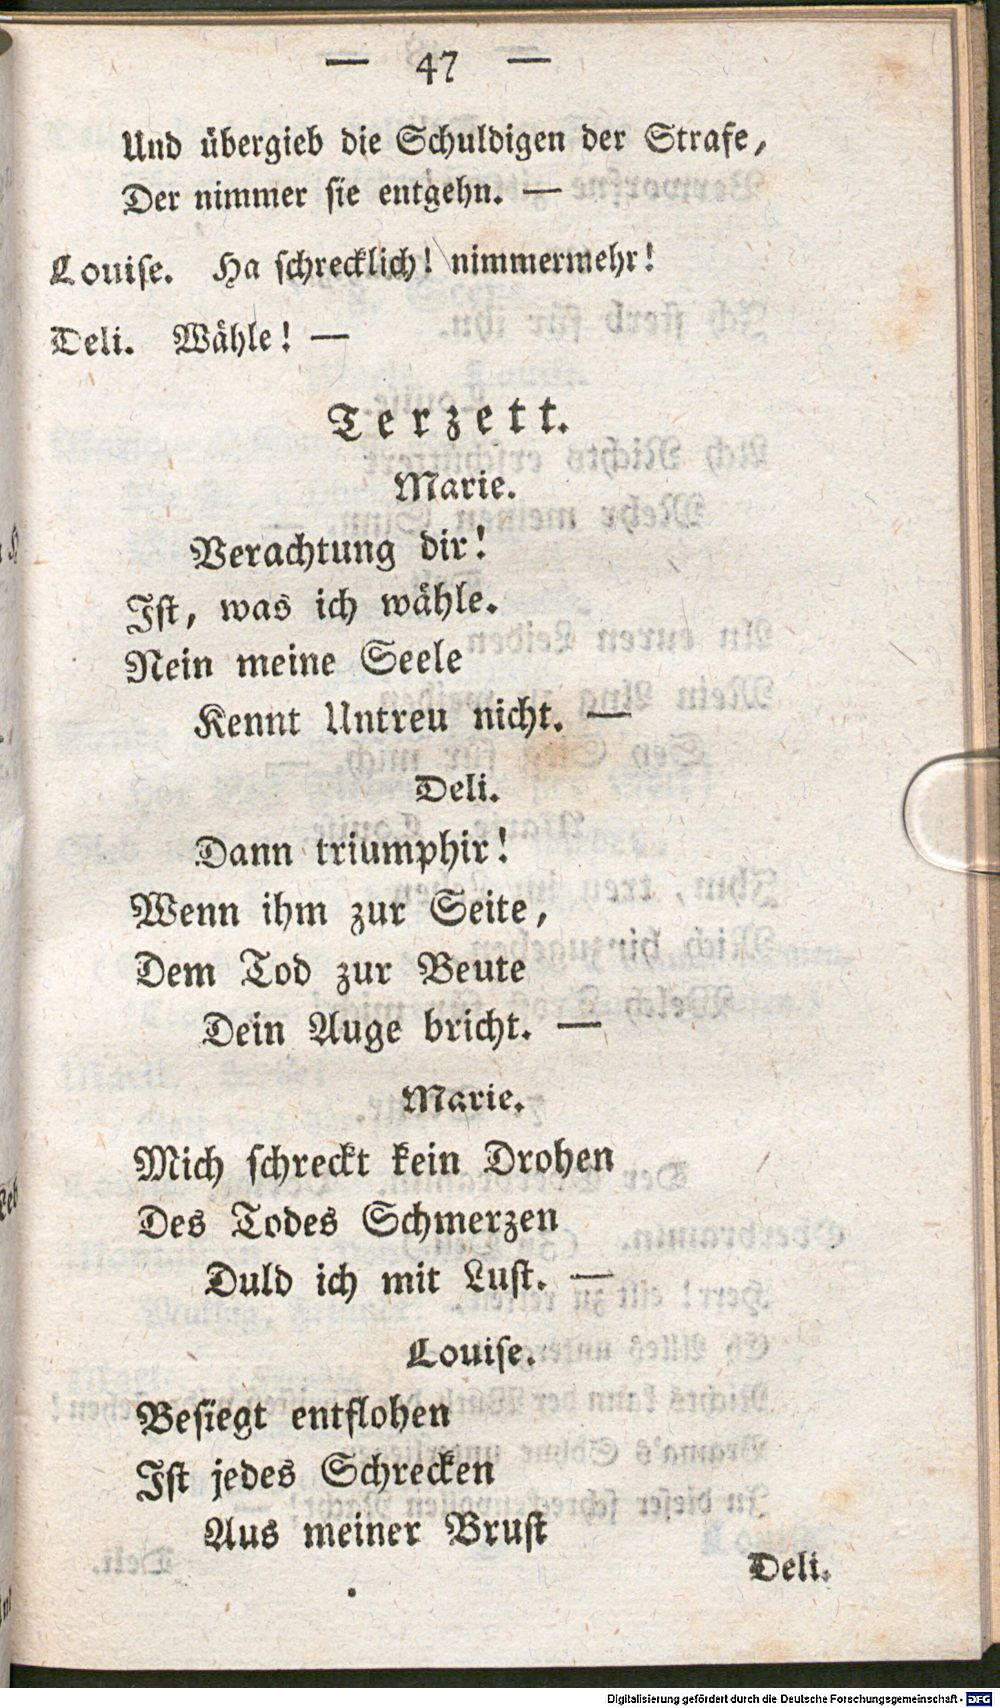 — 47 —
Und übergieb die Schuldigen der Strafe,
Der nimmer sie entgehn. —
Louise. Ha schrecklich! nimmermehr!
Deli. Wähle! —
Terzett.
Marie.
Verachtung dir!
Ist, was ich wähle.
Nein meine Seele
Kennt Untreu nicht. —
Deli.
Dann triumphir!
Wenn ihm zur Seite,
Dem Tod zur Beute
Dein Auge bricht. —
Marie.
Mich schreckt kein Drohen
Des Todes Schmerzen
Duld ich mit Lust. —
Louise.
Besiegt entflohen
Ist jedes Schrecken
Aus meiner Brust
Deli.
Digitalisierung gefördert durch die Deutsche Forschungsgemeinschaft - DFG